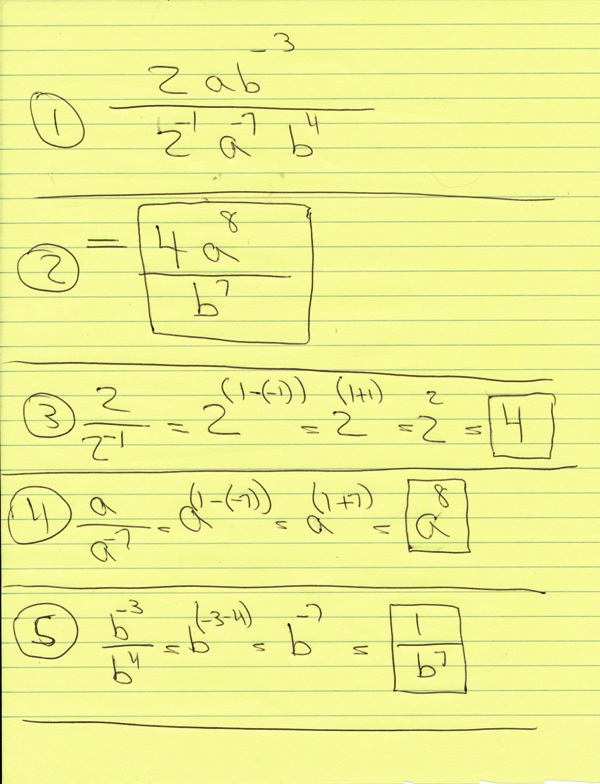 ① 2ab⁻³ / 2⁻¹ a⁻⁷ b⁴
② = 4a⁸ / b⁷
③ 2 / 2⁻¹ = 2⁽¹⁻⁽⁻¹⁾⁾ = 2⁽¹⁺¹⁾ = 2² = 4
④ a / a⁻⁷ = a⁽¹⁻⁽⁻⁷⁾⁾ = a⁽¹⁺⁷⁾ = a⁸
⑤ b⁻³ / b⁴ = b⁽⁻³⁻⁴⁾ = b⁻⁷ = 1 / b⁷